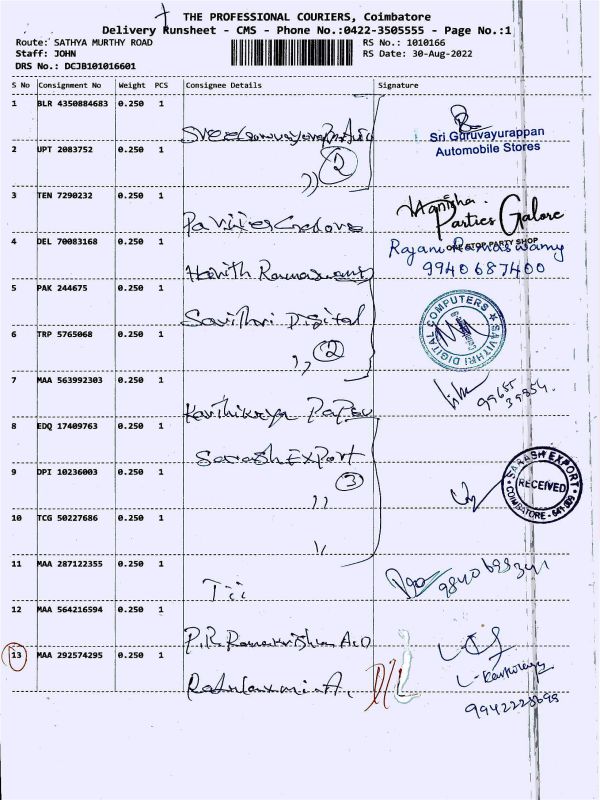 THE PROFESSIONAL COURIERS, Coimbatore
Delivery Runsheet - CMS - Phone No.:0422-3505555 - Page No.:1
Route: SATHYA MURTHY ROAD RS No.: 1010166
Staff: JOHN RS Date: 30-Aug-2022
DRS No.: DCJB101016601
S No Consignment No Weight PCS Consignee Details Signature
1 BLR 4350884683 0.250 1
Sri Guruvayurappan
Automobile Stores
2 UPT 2083752 0.250 1
,, 2
3 TEN 7290232 0.250 1
Parties Galore
Parties Galore
ONE STOP PARTY SHOP
4 DEL 70083168 0.250 1
Harith Ramaswamy
Rajani Ramaswamy
9940687400
5 PAK 244675 0.250 1
Savithri Digital
SAVITHRI DIGITAL COMPUTERS
6 TRP 5765068 0.250 1
,, 2
7 MAA 563992303 0.250 1
Karthikeya Paper
99655
39854
8 EDQ 17409763 0.250 1
Sarash Export
9 DPI 10236003 0.250 1
,, 3
SARASH EXPORT
RECEIVED
COIMBATORE - 641 009
10 TCG 50227686 0.250 1
,,
11 MAA 287122355 0.250 1
Tii
12 MAA 564216594 0.250 1
P.R. Ramakrishnan
13 MAA 292574295 0.250 1
D/L
9942228699